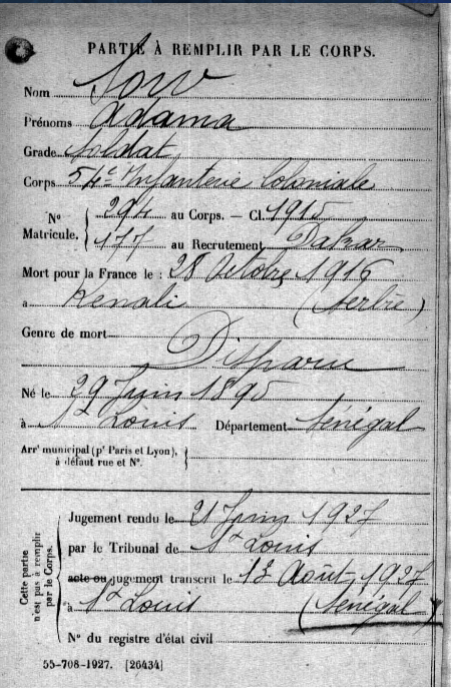 PARTIE À REMPLIR PAR LE CORPS.
Nom Sow
Prénoms Adama
Grade Soldat
Corps 54e Infanterie Coloniale
N° Matricule. { 294 au Corps. — Cl. 1915
177 au Recrutement Dakar
Mort pour la France le : 28 Octobre 1916
à Kenali (Serbie)
Genre de mort
Disparu
Né le 29 Juin 1895
à St Louis Département Sénégal
Arrt municipal (pr Paris et Lyon), à défaut rue et N°. {
Cette partie n'est pas à remplir par le Corps.
Jugement rendu le 21 Juin 1927
par le Tribunal de St Louis
acte ou jugement transcrit le 12 Août 1927
à St Louis (Sénégal)
N° du registre d'état civil
55-708-1927. [26434]